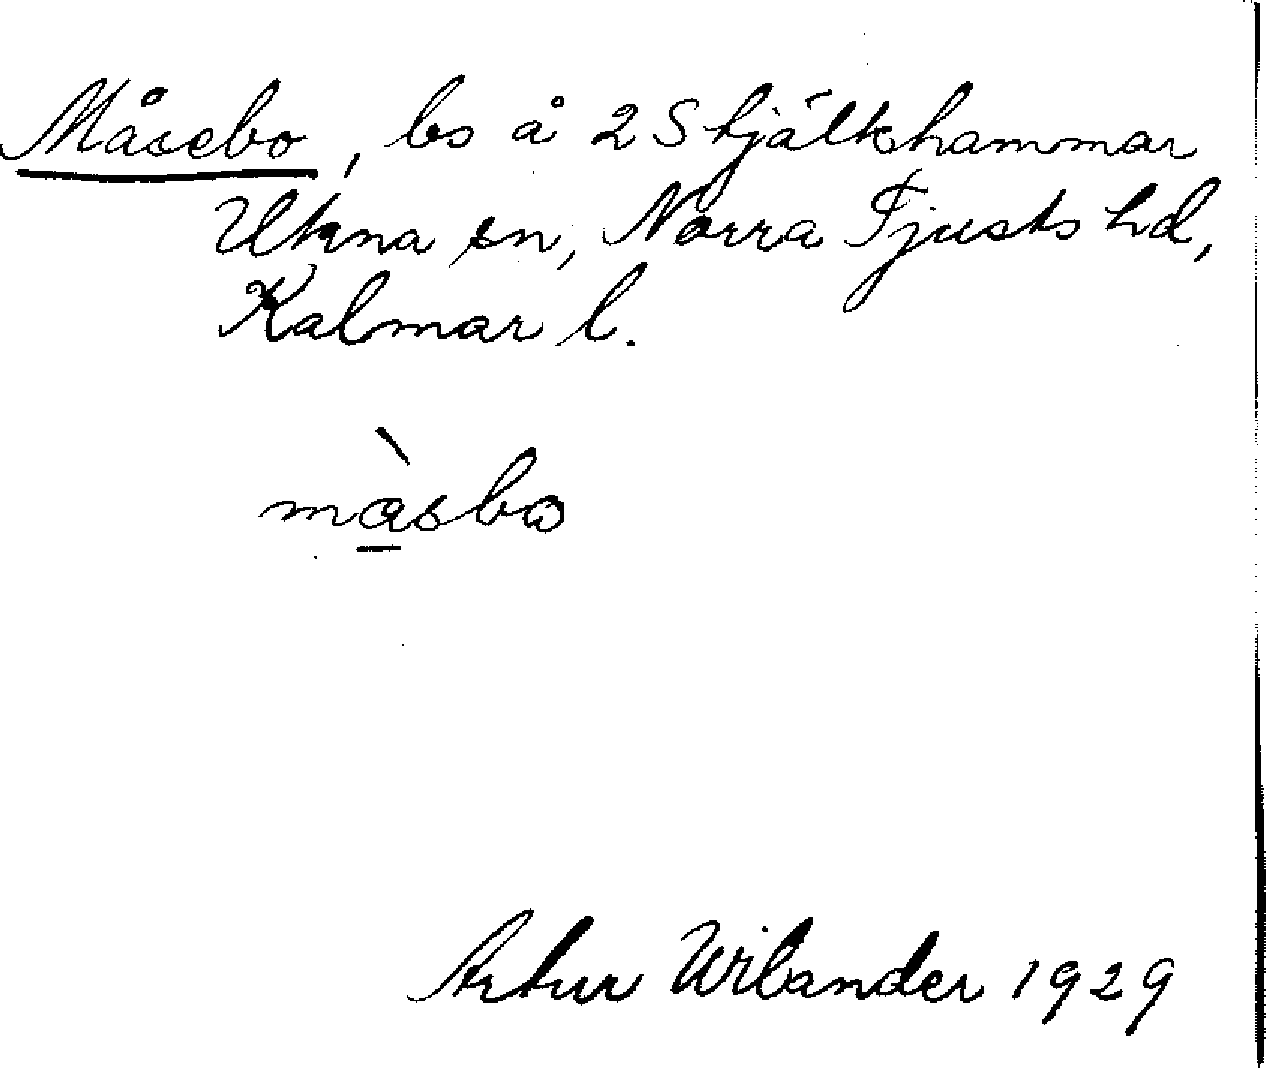 Måsebo, bs å 2 Skjälkhammar
Ukna sn, Norra Tjusts hd,
Kalmar l.
màsbo
Artur Wilander 1929